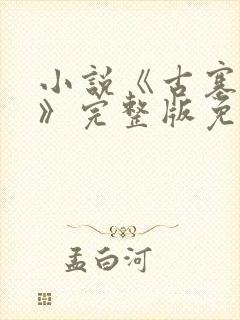 小説《古塞
》完整版免
孟白河